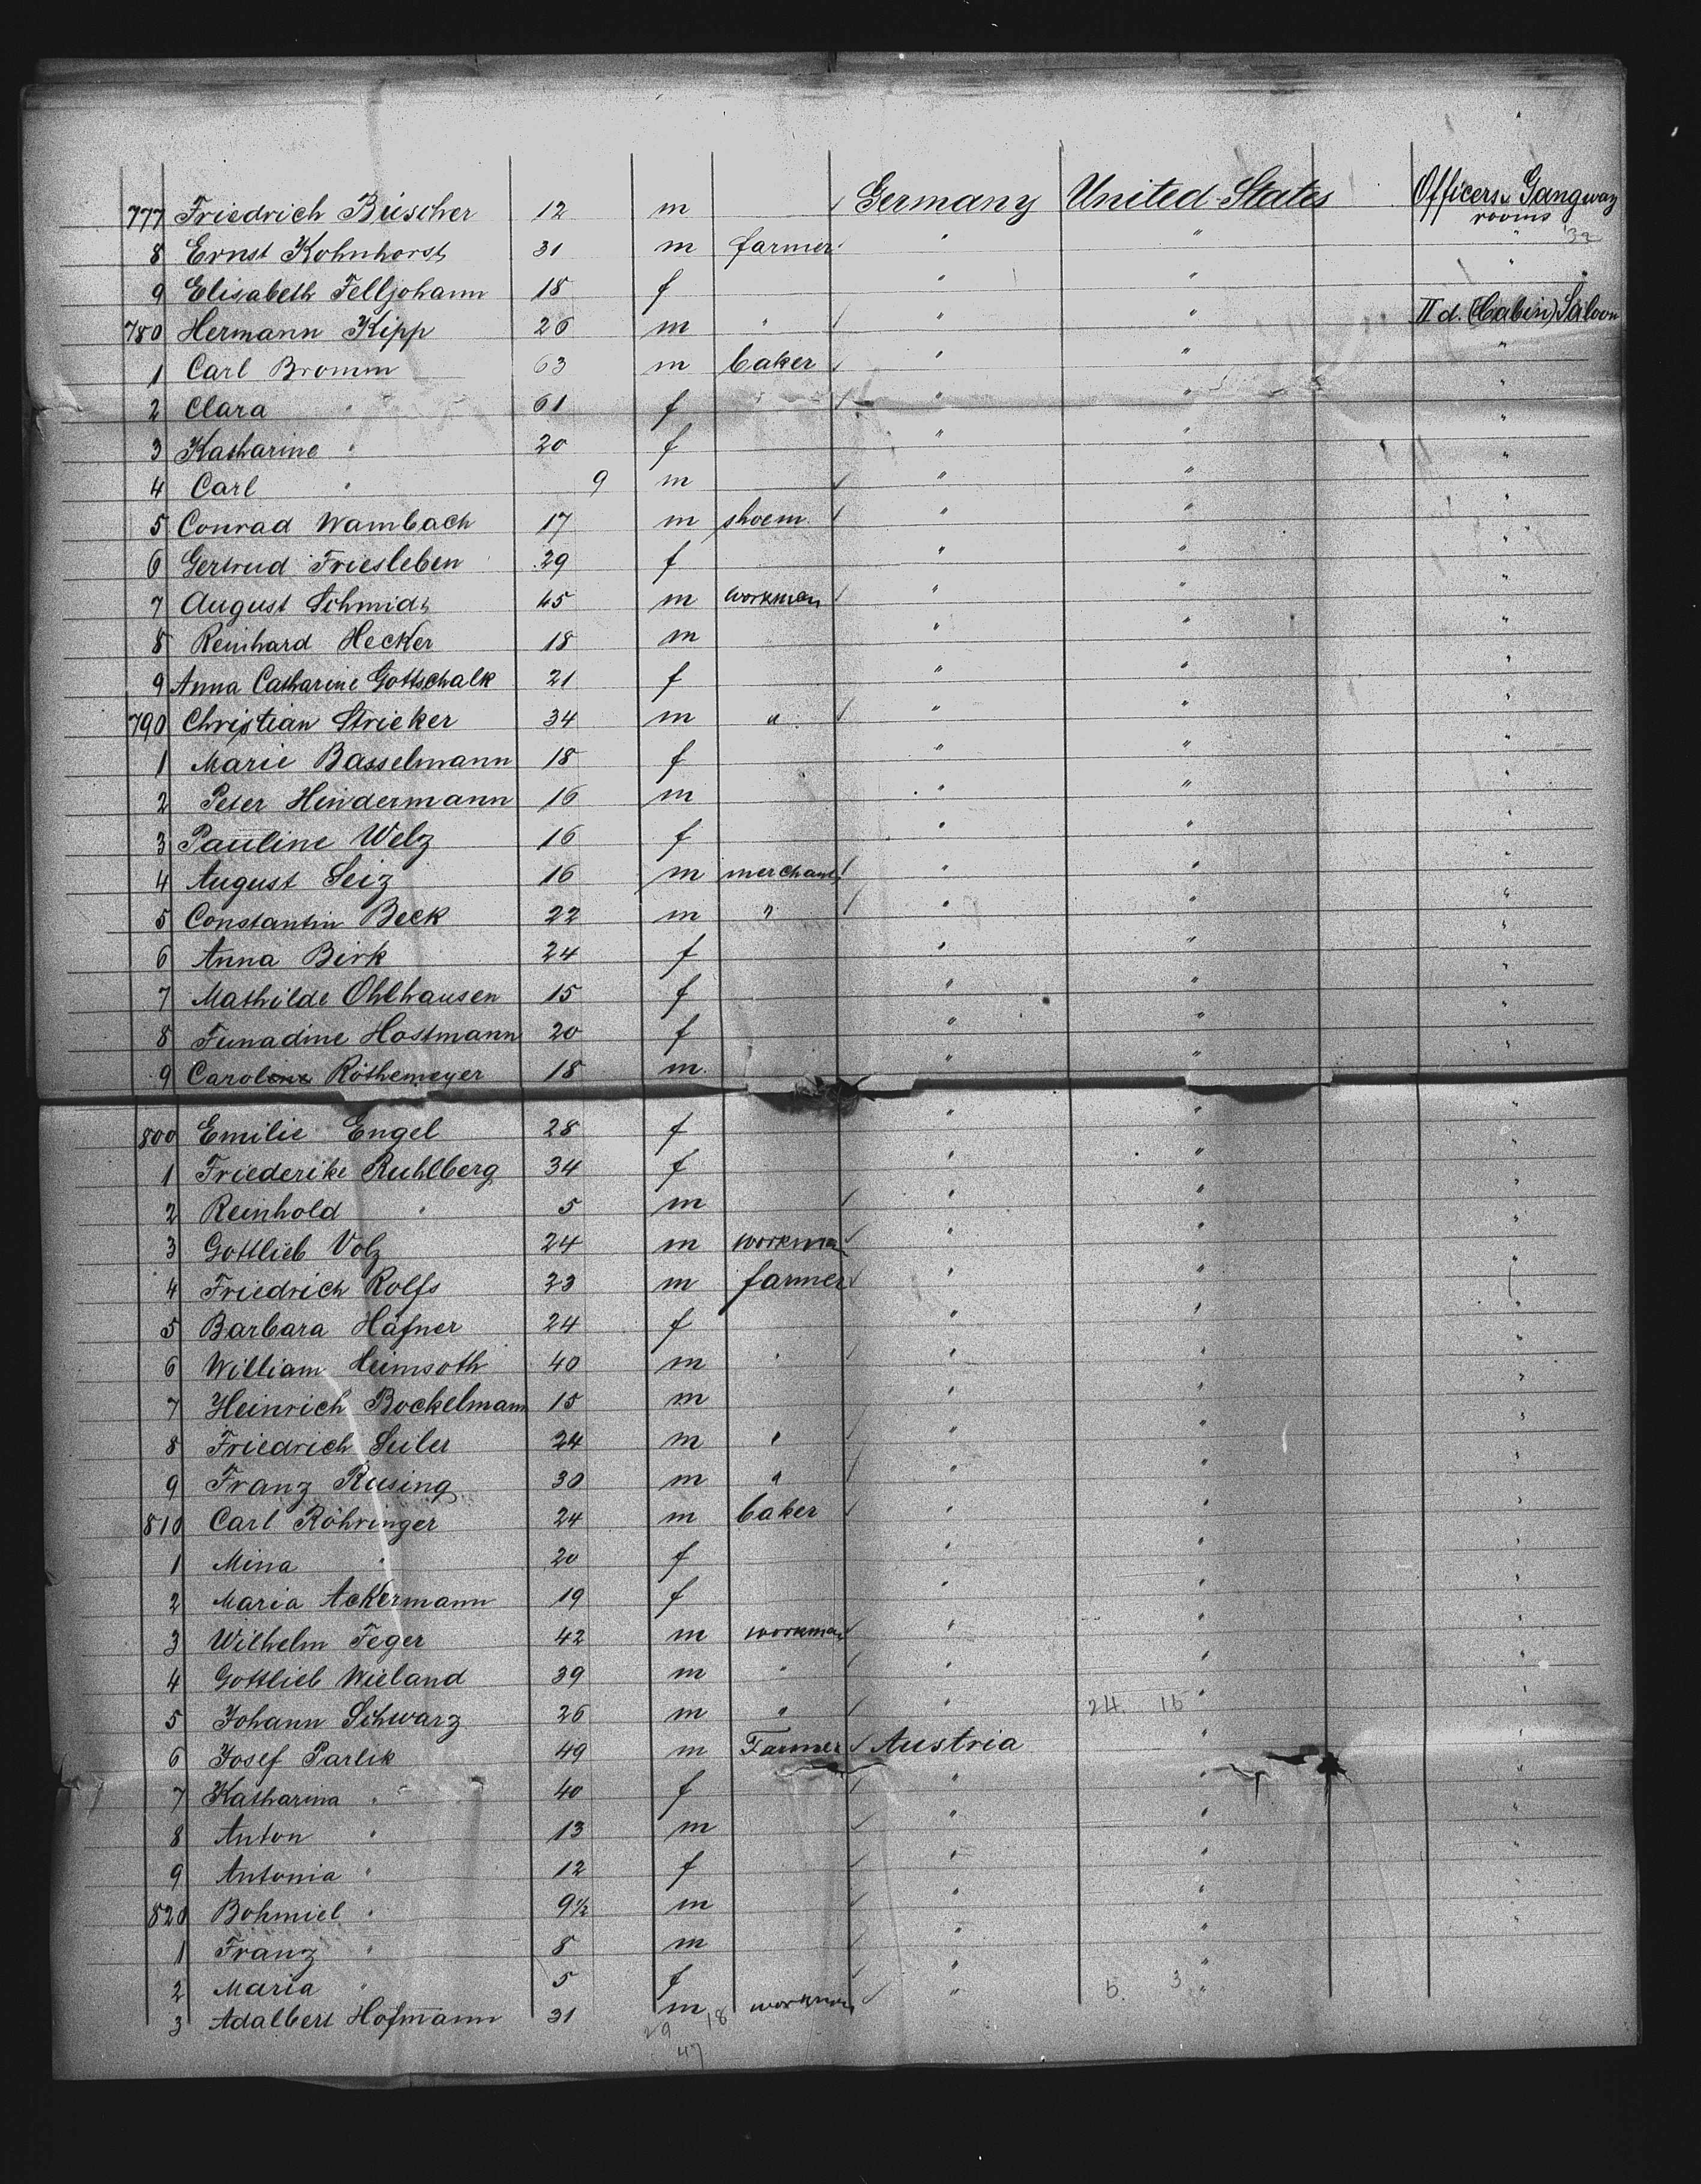 777 Friedrich Büscher 12 m Germany United States Officers & Gangway rooms
8 Ernst Kohnhorst 31 m farmer " " " 32
9 Elisabeth Felljohann 18 f " " "
780 Hermann Kipp 26 m " " " IId. (Cabin) Saloon
1 Carl Bromm 63 m baker " " "
2 Clara " 61 f " " "
3 Katharine " 20 f " " "
4 Carl " 9 m " " "
5 Conrad Wambach 17 m shoem. " " "
6 Gertrud Friesleben 29 f " " "
7 August Schmidt 45 m workman " " "
8 Reinhard Hecker 18 m " " "
9 Anna Catharine Gottschalk 21 f " " "
790 Christian Stricker 34 m " " " "
1 Marie Basselmann 18 f " " "
2 Peter Hindermann 16 m " " "
3 Pauline Welz 16 f " " "
4 August Seiz 16 m merchant " " "
5 Constantin Beck 22 m " " " "
6 Anna Birk 24 f " " "
7 Mathilde Ohlhausen 15 f " " "
8 Hostmann 20 f " " "
9 Carol Röthemeyer 18 m. " " "
800 Emilie Engel 28 f " " "
1 Friederike Ruhlberg 34 f " " "
2 Reinhold " 5 m " " "
3 Gottlieb Volz 24 m workman " " "
4 Friedrich Rolfs 23 m farmer " " "
5 Barbara Häfner 24 f " " "
6 William Heimsoth 40 m " " " "
7 Heinrich Bockelmann 15 m " " "
8 Friedrich Seiler 24 m " " " "
9 Franz Rüsing 30 m " " " "
810 Carl Röhringer 24 m baker " " "
1 Mina " 20 f " " "
2 Maria Ackermann 19 f " " "
3 Wilhelm Feger 42 m workman " " "
4 Gottlieb Wieland 39 m " " " "
5 Johann Schwarz 26 m " " 24. 15 " "
6 Josef Parlik 49 m Farmer Austria " "
7 Katharina " 40 f " " "
8 Anton " 13 m " " "
9 Antonia " 12 f " " "
820 Bohmiel " 9½ m " " "
1 Franz " 8 m " "
2 Maria " 5 f " "
3 Adalbert Hofmann 31 m workman " 5. 3 "
29 18
47